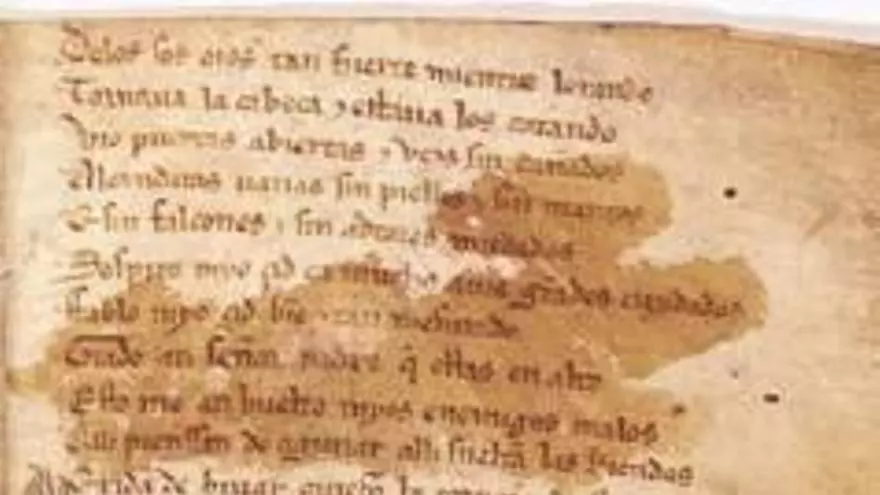 Delos sos oios tan fuerte mientre lorando
Tornaua la cabeça y estaua los catando
Vio puertas abiertas y vços sin cañados
Alcandaras uazias sin pielles y sin mantos
E sin falcones y sin adtores mudados
Sospiro myo çid ca mucho auie grãdes cuydados
Fablo myo çid biẽ y tan mesurado
Grado a ti señor padre q̃ estas en alto
Esto me an buelto myos enemigos malos
Alli pienssan de aguiiar alli sueltã las Riendas